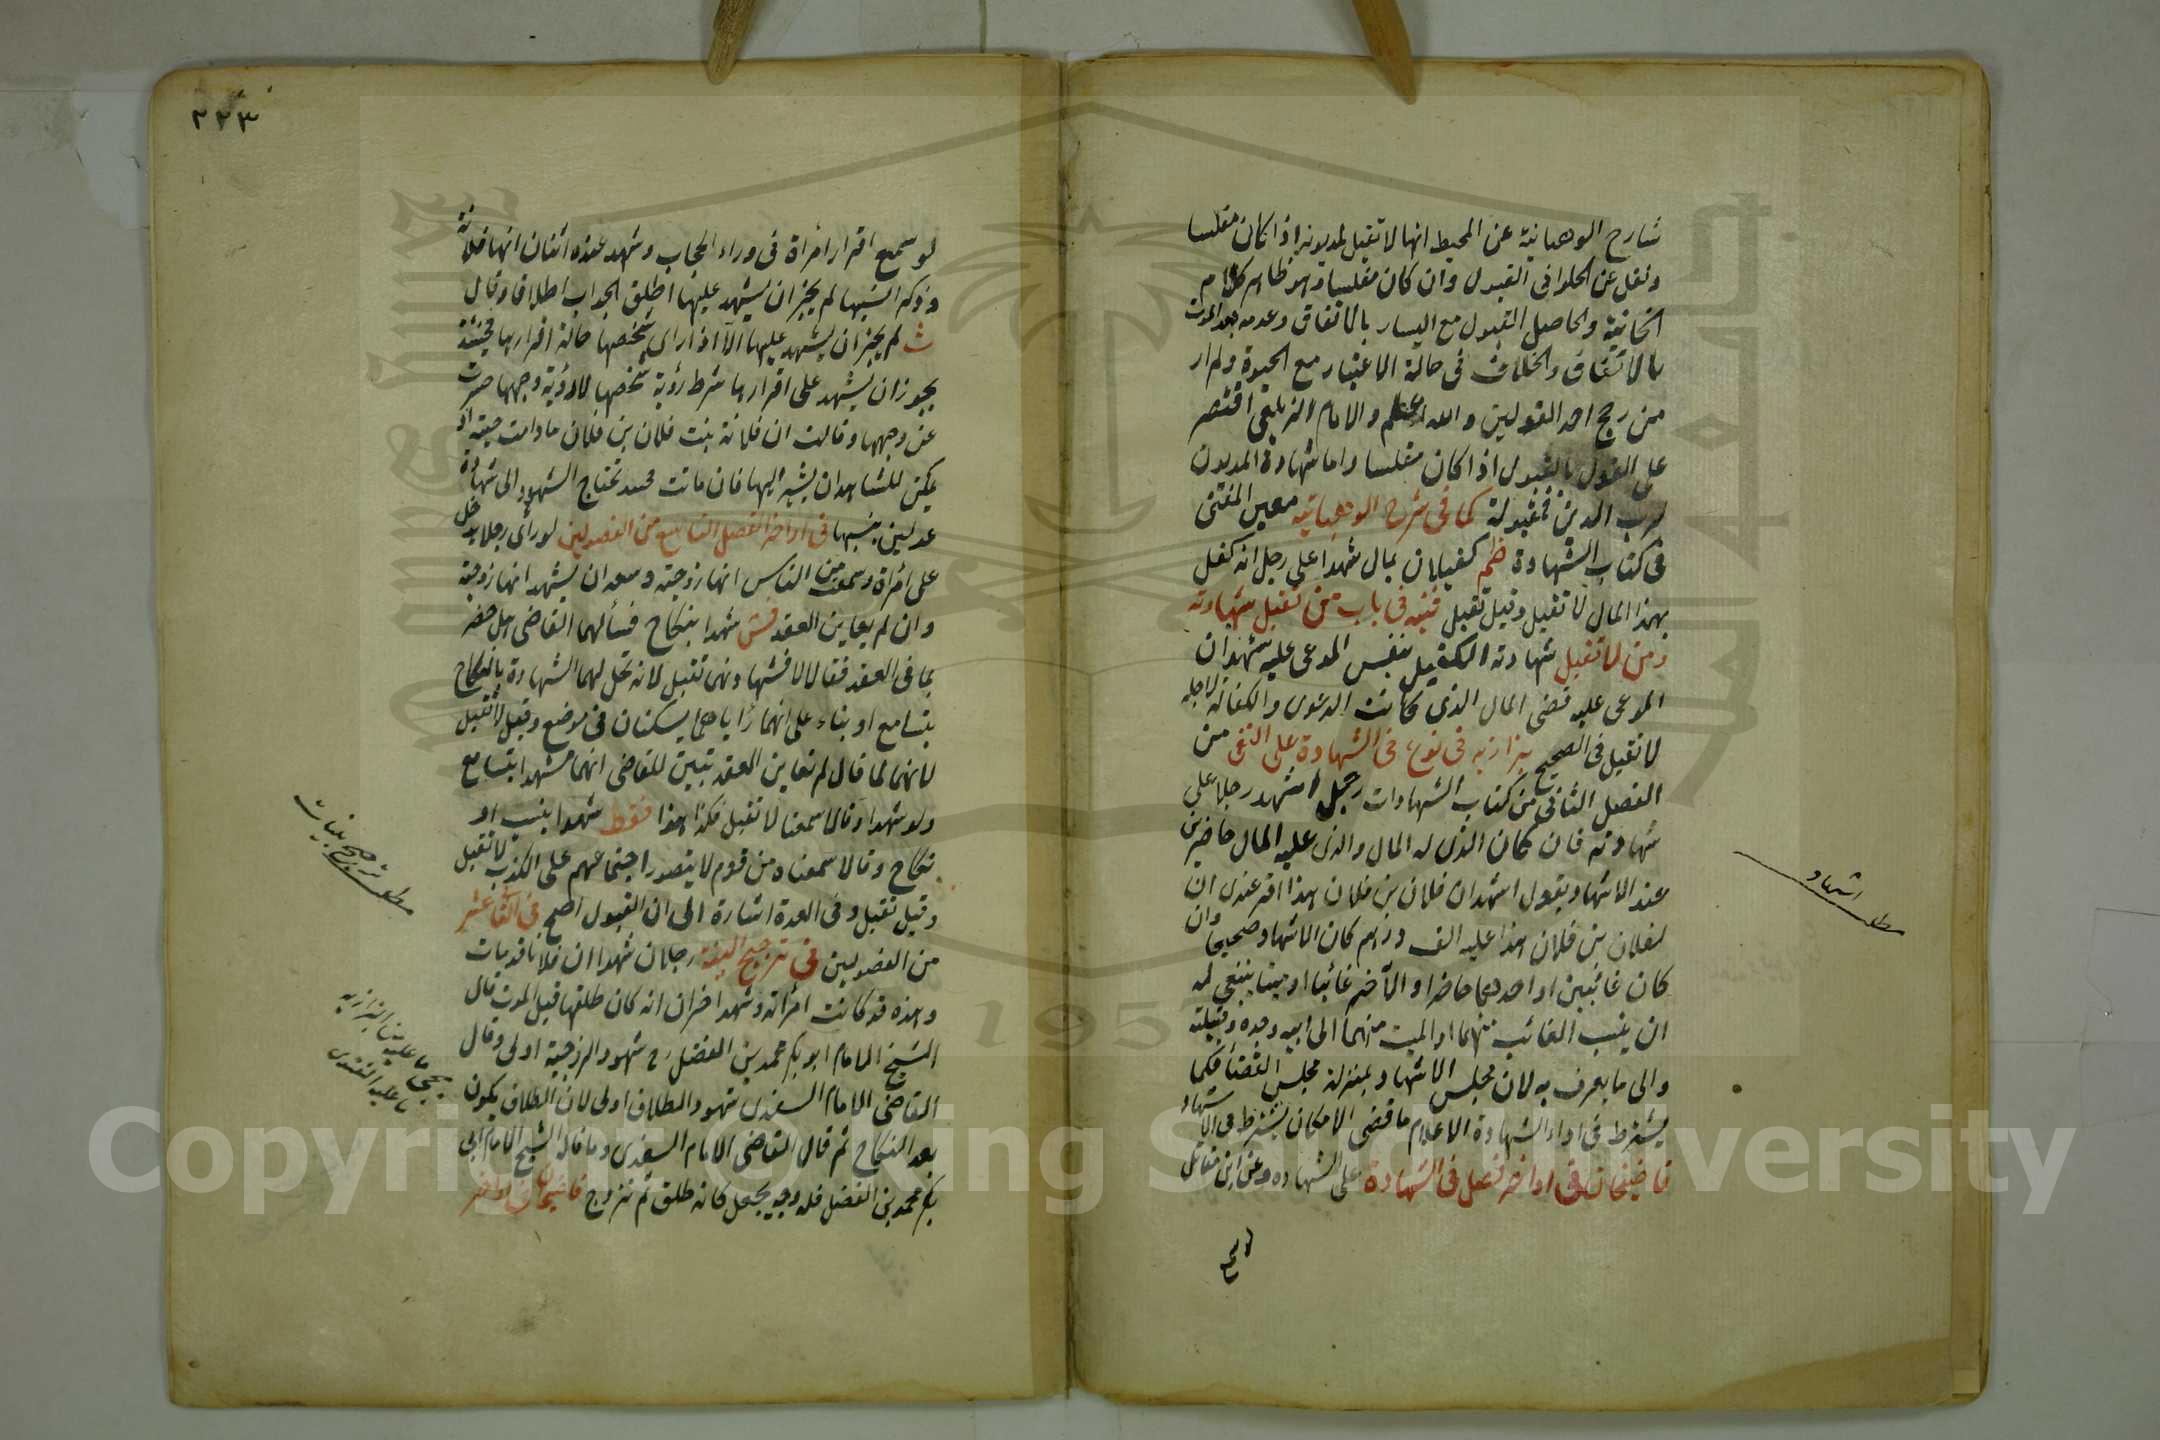 شارح الوهبانية عن المحيط انها لا تقبل لمديونه اذا كان مفلسا
ونقل عن الحلوانى القبول وان كان مفلسا وهو ظاهر كلام
الخانية والحاصل القبول مع اليسار بالاتفاق وعدمه بعد الموت
بالاتفاق والخلاف فى حالة الاعتبار مع الحيوة ولم ار
من رجح احد القولين والله اعلم والامام الزيلعى اقتصر
على القول بالقبول اذا كان مفلسا واما شهادة المديون
لرب الدين فمقبولة كما فى شرح الوهبانيه معين المفتى
فى كتاب الشهادة ظم كفيلان بمال شهدا على رجل انه كفل
بهذا المال لا تقبل وقيل تقبل قنيه فى باب من تقبل شهادته
ومن لا تقبل شهادته الكفيل بنفس المدعى عليه شهد ان
المدعى عليه قضى المال الذى كانت الدعوى والكفالة لاجله
لا تقبل فى الصحيح بزازيه فى نوع فى الشهادة على النفى من
الفصل الثانى من كتاب الشهادات رجل اشهد رجلا على
شهادته فان كان الذى له المال والذى عليه المال حاضرين
عند الاشهاد يقول اشهد ان فلان بن فلان هذا اقر عندى ان
لفلان بن فلان هذا عليه الف درهم كان الاشهاد صحيحا وان
كان غائبين او احدهما حاضرا والآخر غائبا او ميتا ينبغى له
ان ينسب الغائب منهما او الميت منهما الى ابيه وجده وقبيلته
والى ما يعرف به لان مجلس الاشهاد بمنزلة مجلس القضأ فكما
يشترط فى اداء الشهادة الاعلام ما قضى الامكان يشترط فى الاشهاد
قاضيخان فى اواخر فصل فى الشهادة على الشهاده وعن ابن مقاتل
لو سمع
مطلب اشهاد
٢٢٣
لو سمع اقرار امرأة فى وراء الحجاب وشهد عنده اثنان انها فلانة
وذكر انسيبها لم يجز ان يشهد عليها اطلق الجواب اطلاقا وقال
ث لم يجز ان يشهد عليها الا اذا رأى شخصها حالة اقرارها فحينئذ
يجوز ان يشهد على اقرارها شرط رؤية شخصها لا رؤية وجهها حسرت
عن وجهها وقالت ان فلانة بنت فلان بن فلان ما دامت حية اذ
يمكن للشاهد ان يشير اليها فان ماتت فحينئذ تحتاج الشهود الى شهادة
عدلين بنسبها فى اواخر الفصل التاسع من الفصولين لو رأى رجلا يدخل
على امرأة وسمع من الناس انها زوجته وسعه ان يشهد انها زوجته
وان لم يعاين العقد فش شهدا بنكاح فسألهما القاضى هل حضر
بما فى العقد فقالا لا فشهادتهما تقبل لانه تحل لهما الشهادة بالنكاح
بتسامع او بناء على انهما رأياهما يسكنان فى موضع وقيل لا تقبل
لانهما لما قالا لم نعاين العقد تبين للقاضى انهما شهدا بتسامع
ولو شهدا وقالا سمعنا لا تقبل فكذا هذا فقط شهدا بنسب او
نكاح وقالا سمعناه من قوم لا يتصور اجتماعهم على الكذب لا تقبل
وقيل تقبل وفى العدة اشارة الى ان القبول اصح فى الثانى عشر
من الفصولين فى ترجيح البينة رجلان شهدا ان فلانا قد مات
وهذه قد كانت امرأته وشهد اخران انه كان طلقها قبل الموت قال
الشيخ الامام ابو بكر محمد بن الفضل رح شهود الزوجية اولى وقال
القاضى الامام السغدى شهود الطلاق اولى لان الطلاق يكون
بعد النكاح ثم قال القاضى الامام السغدى وما قاله الشيخ الامام ابى
بكر محمد بن الفضل فله وجه يجعل كانه طلق ثم تزوج قاضيخان فى اواخر
مطلب ترجيح بينات
يجى ما عليه البزازيه
ما عليه الفتوى
1957
Copyright © King Saud University